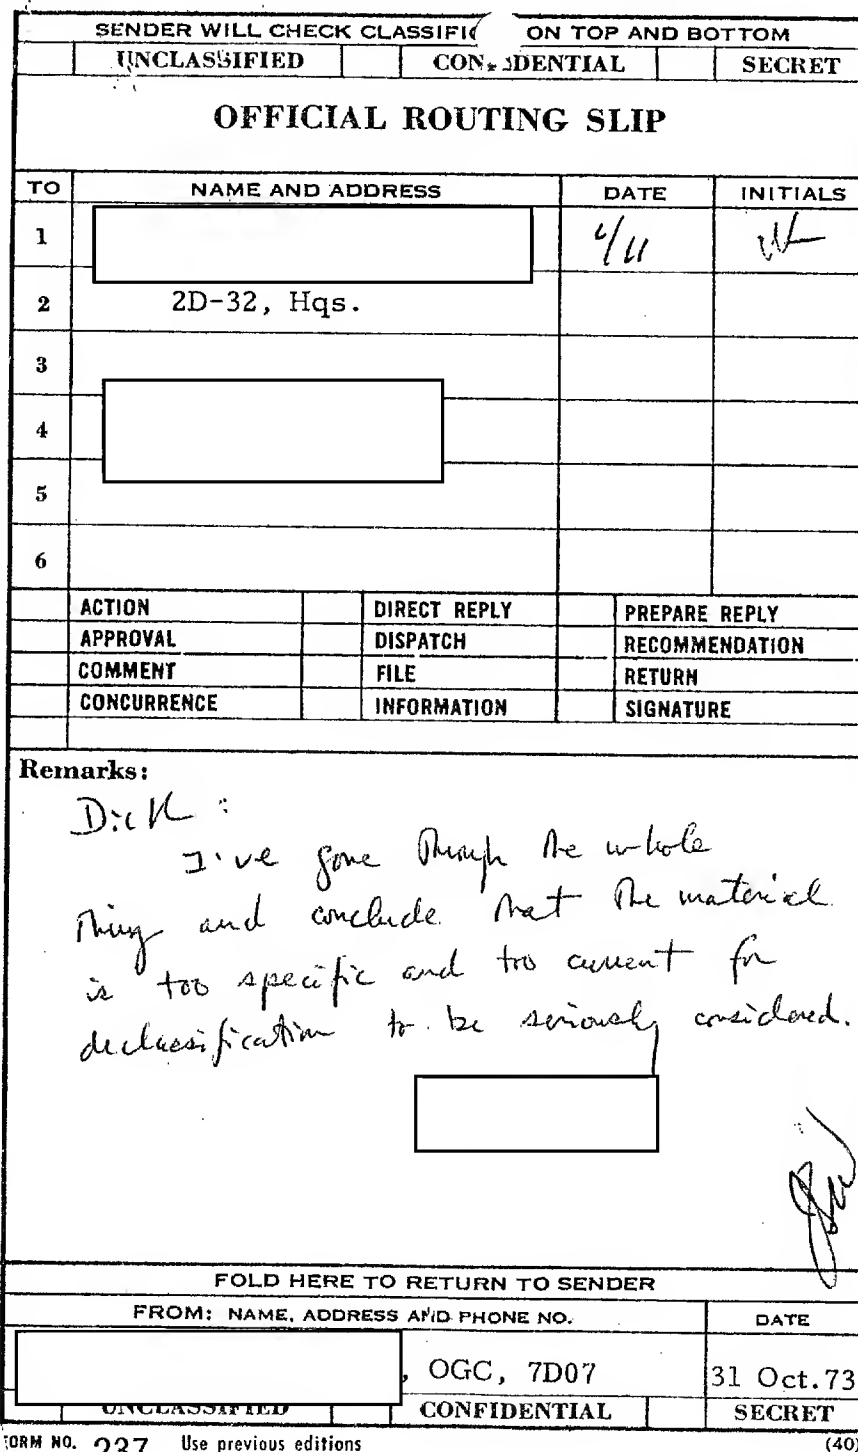 SENDER WILL CHECK CLASSIFIC ON TOP AND BOTTOM
UNCLASSIFIED CONFIDENTIAL SECRET
OFFICIAL ROUTING SLIP
TO NAME AND ADDRESS DATE INITIALS
1
2 2D-32, Hqs.
3
4
5
6
ACTION DIRECT REPLY PREPARE REPLY
APPROVAL DISPATCH RECOMMENDATION
COMMENT FILE RETURN
CONCURRENCE INFORMATION SIGNATURE
Remarks:
Dick:
I've gone through the whole
thing and conclude that the material
is too specific and too current for
declassification to be seriously considered.
FOLD HERE TO RETURN TO SENDER
FROM: NAME, ADDRESS AND PHONE NO. DATE
, OGC, 7D07 31 Oct.73
UNCLASSIFIED CONFIDENTIAL SECRET
FORM NO. 237 Use previous editions (40)